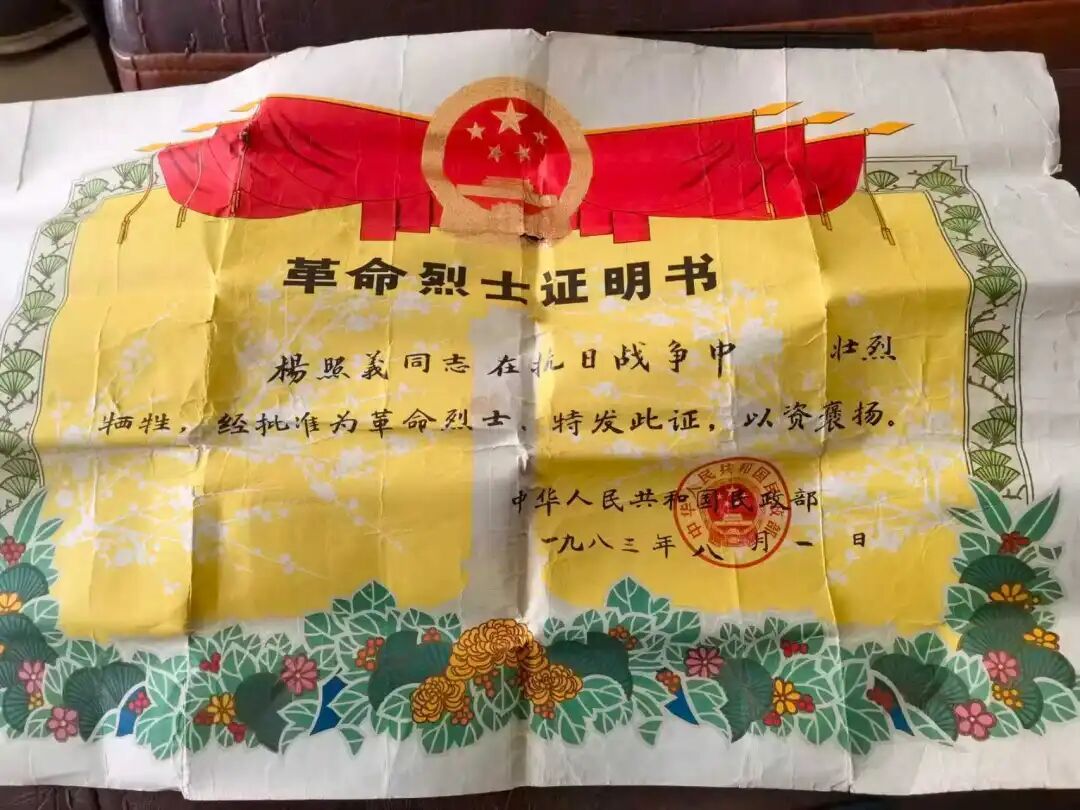 革命烈士证明书
楊照義同志在抗日战争中 壮烈
牺牲，经批准为革命烈士、特发此证，以资褒扬。
中华人民共和国民政部
一九八三年八月一日
中华人民共和国民政部